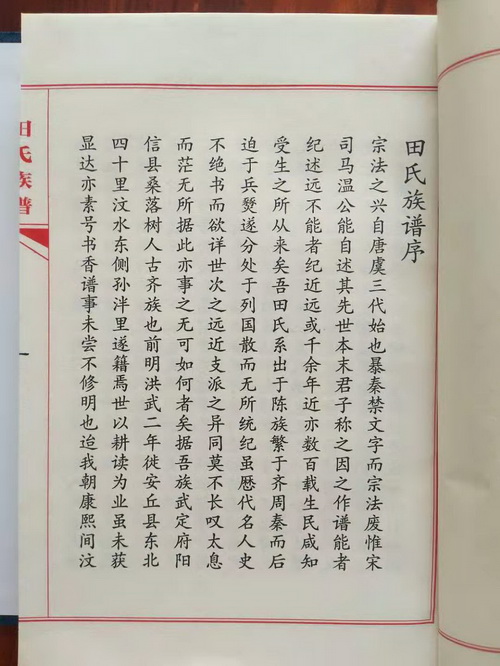 田氏族谱序
宗法之兴自唐虞三代始也暴秦禁文字而宗法废惟宋
司马温公能自述其先世本末君子称之因之作谱能者
纪述远不能者纪近远或千余年近亦数百载生民咸知
受生之所从来矣吾田氏系出于陈族繁于齐周秦而后
迫于兵燹遂分处于列国散而无所统纪虽历代名人史
不绝书而欲详世次之远近支派之异同莫不长叹太息
而茫无所据此亦事之无可如何者矣据吾族武定府阳
信县桑落树人古齐族也前明洪武二年徙安丘县东北
四十里汶水东侧孙泮里遂籍焉世以耕读为业虽未获
显达亦素号书香谱事未尝不修明也迨我朝康熙间汶
田氏族谱